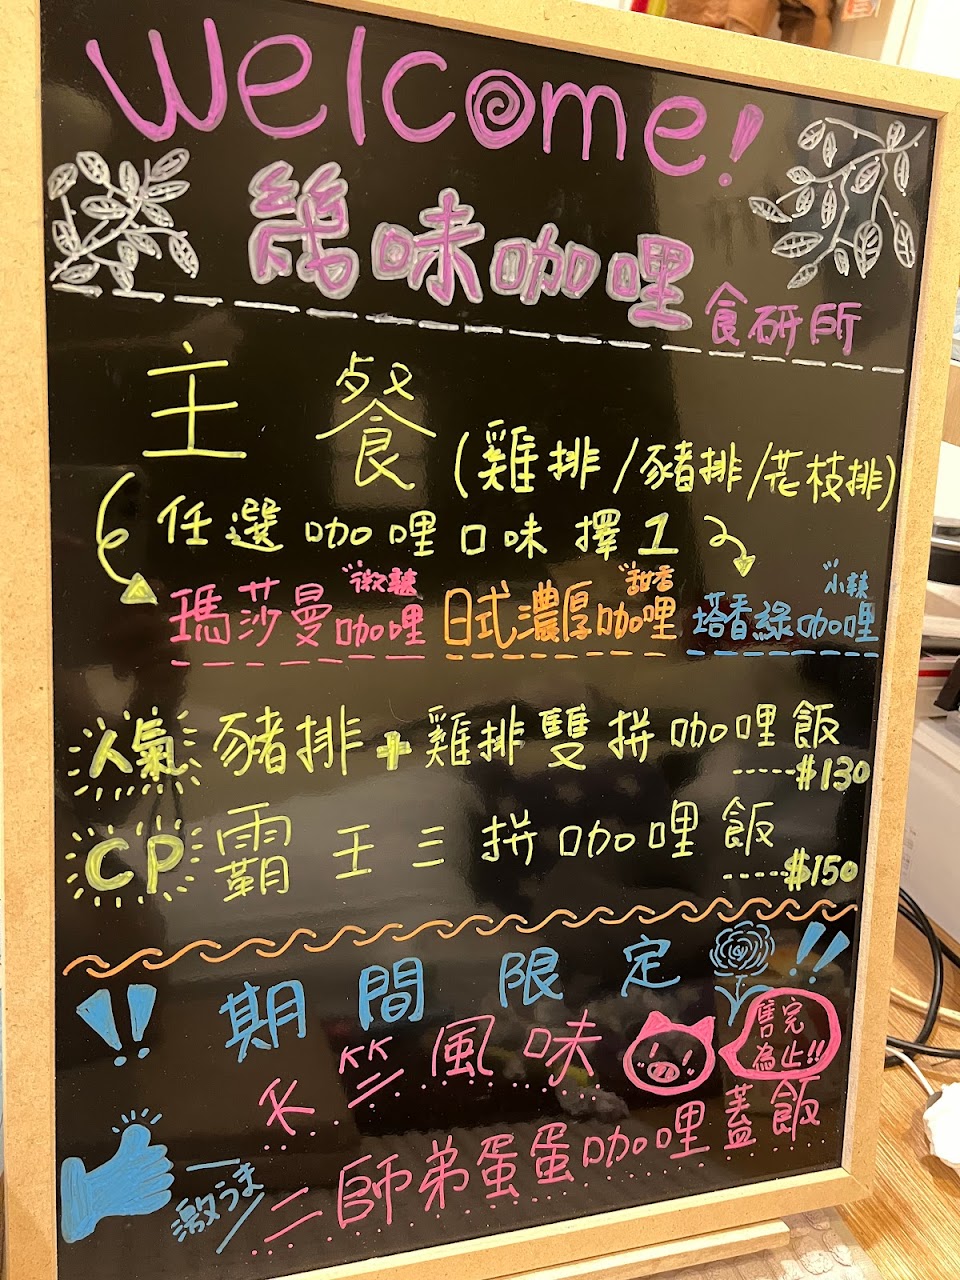 Welcome!
味咖哩食研所
主餐(雞排/豬排/花枝排)
任選咖哩口味擇1
瑪莎曼咖哩 微辣
日式濃厚咖哩 甜香
塔香綠咖哩 小辣
人氣 豬排+雞排雙拼咖哩飯
-----$130
CP 霸王三拼咖哩飯
-----$150
!! 期間限定 !!
天竺風味
售完
為止!!
激うま
二師弟蛋蛋咖哩蓋飯